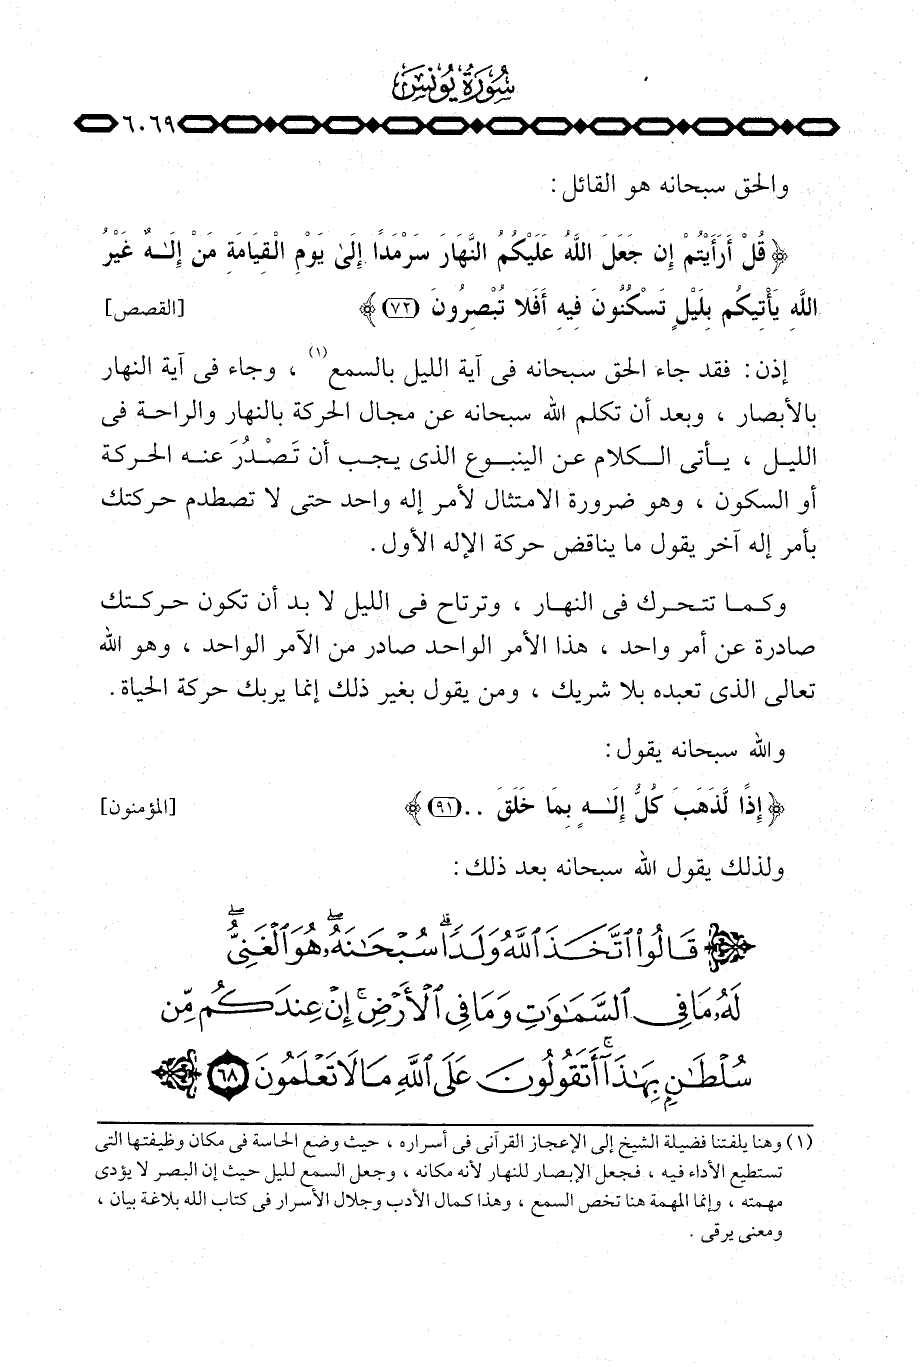 سُورَةُ يُونُسَ
٦٠٦٩
والحق سبحانه هو القائل:
﴿ قُلْ أَرَأَيْتُمْ إِن جَعَلَ اللَّهُ عَلَيْكُمُ النَّهَارَ سَرْمَدًا إِلَىٰ يَوْمِ الْقِيَامَةِ مَنْ إِلَـٰهٌ غَيْرُ
اللَّهِ يَأْتِيكُم بِلَيْلٍ تَسْكُنُونَ فِيهِ أَفَلا تُبْصِرُونَ (٧٢) ﴾ [القصص]
إذن: فقد جاء الحق سبحانه فى آية الليل بالسمع(١) ، وجاء فى آية النهار
بالأبصار ، وبعد أن تكلم الله سبحانه عن مجال الحركة بالنهار والراحة فى
الليـل ، يـأتى الـكلام عن الينبـوع الذى يـجب أن تَصْـدُرَ عنـه الحركة
أو السكون ، وهو ضرورة الامتثال لأمر إله واحد حتى لا تصطدم حركتك
بأمر إله آخر يقول ما يناقض حركة الإله الأول.
وكـمـا تتـحـرك فى النهـار ، وترتاح فى الليل لا بد أن تكون حـركـتك
صادرة عن أمر واحد ، هذا الأمر الواحد صادر من الآمر الواحد ، وهو الله
تعالى الذى تعبده بلا شريك ، ومن يقول بغير ذلك إنما يربك حركة الحياة.
والله سبحانه يقول:
﴿ إِذًا لَّذَهَبَ كُلُّ إِلَـٰهٍ بِمَا خَلَقَ .. (٩١) ﴾ [المؤمنون]
ولذلك يقول الله سبحانه بعد ذلك:
قَالُوا۟ ٱتَّخَذَ ٱللَّهُ وَلَدًا ۗ سُبْحَـٰنَهُۥ ۖ هُوَ ٱلْغَنِىُّ ۖ
لَهُۥ مَا فِى ٱلسَّمَـٰوَٰتِ وَمَا فِى ٱلْأَرْضِ ۚ إِنْ عِندَكُم مِّن
سُلْطَـٰنٍۭ بِهَـٰذَآ ۚ أَتَقُولُونَ عَلَى ٱللَّهِ مَا لَا تَعْلَمُونَ ٦٨
(١) وهنا يلفتنا فضيلة الشيخ إلى الإعجاز القرآنى فى أسراره ، حيث وضع الحاسة فى مكان وظيفتها التى
تستطيع الأداء فيه ، فـجعل الإبصار للنهار لأنه مكانه ، وجعل السمع لليل حيث إن البصر لا يؤدى
مهمته ، وإنما المهمة هنا تخص السمع ، وهذا كمال الأدب وجلال الأسرار فى كتاب الله بلاغة بيان ،
ومعنى يرقى .